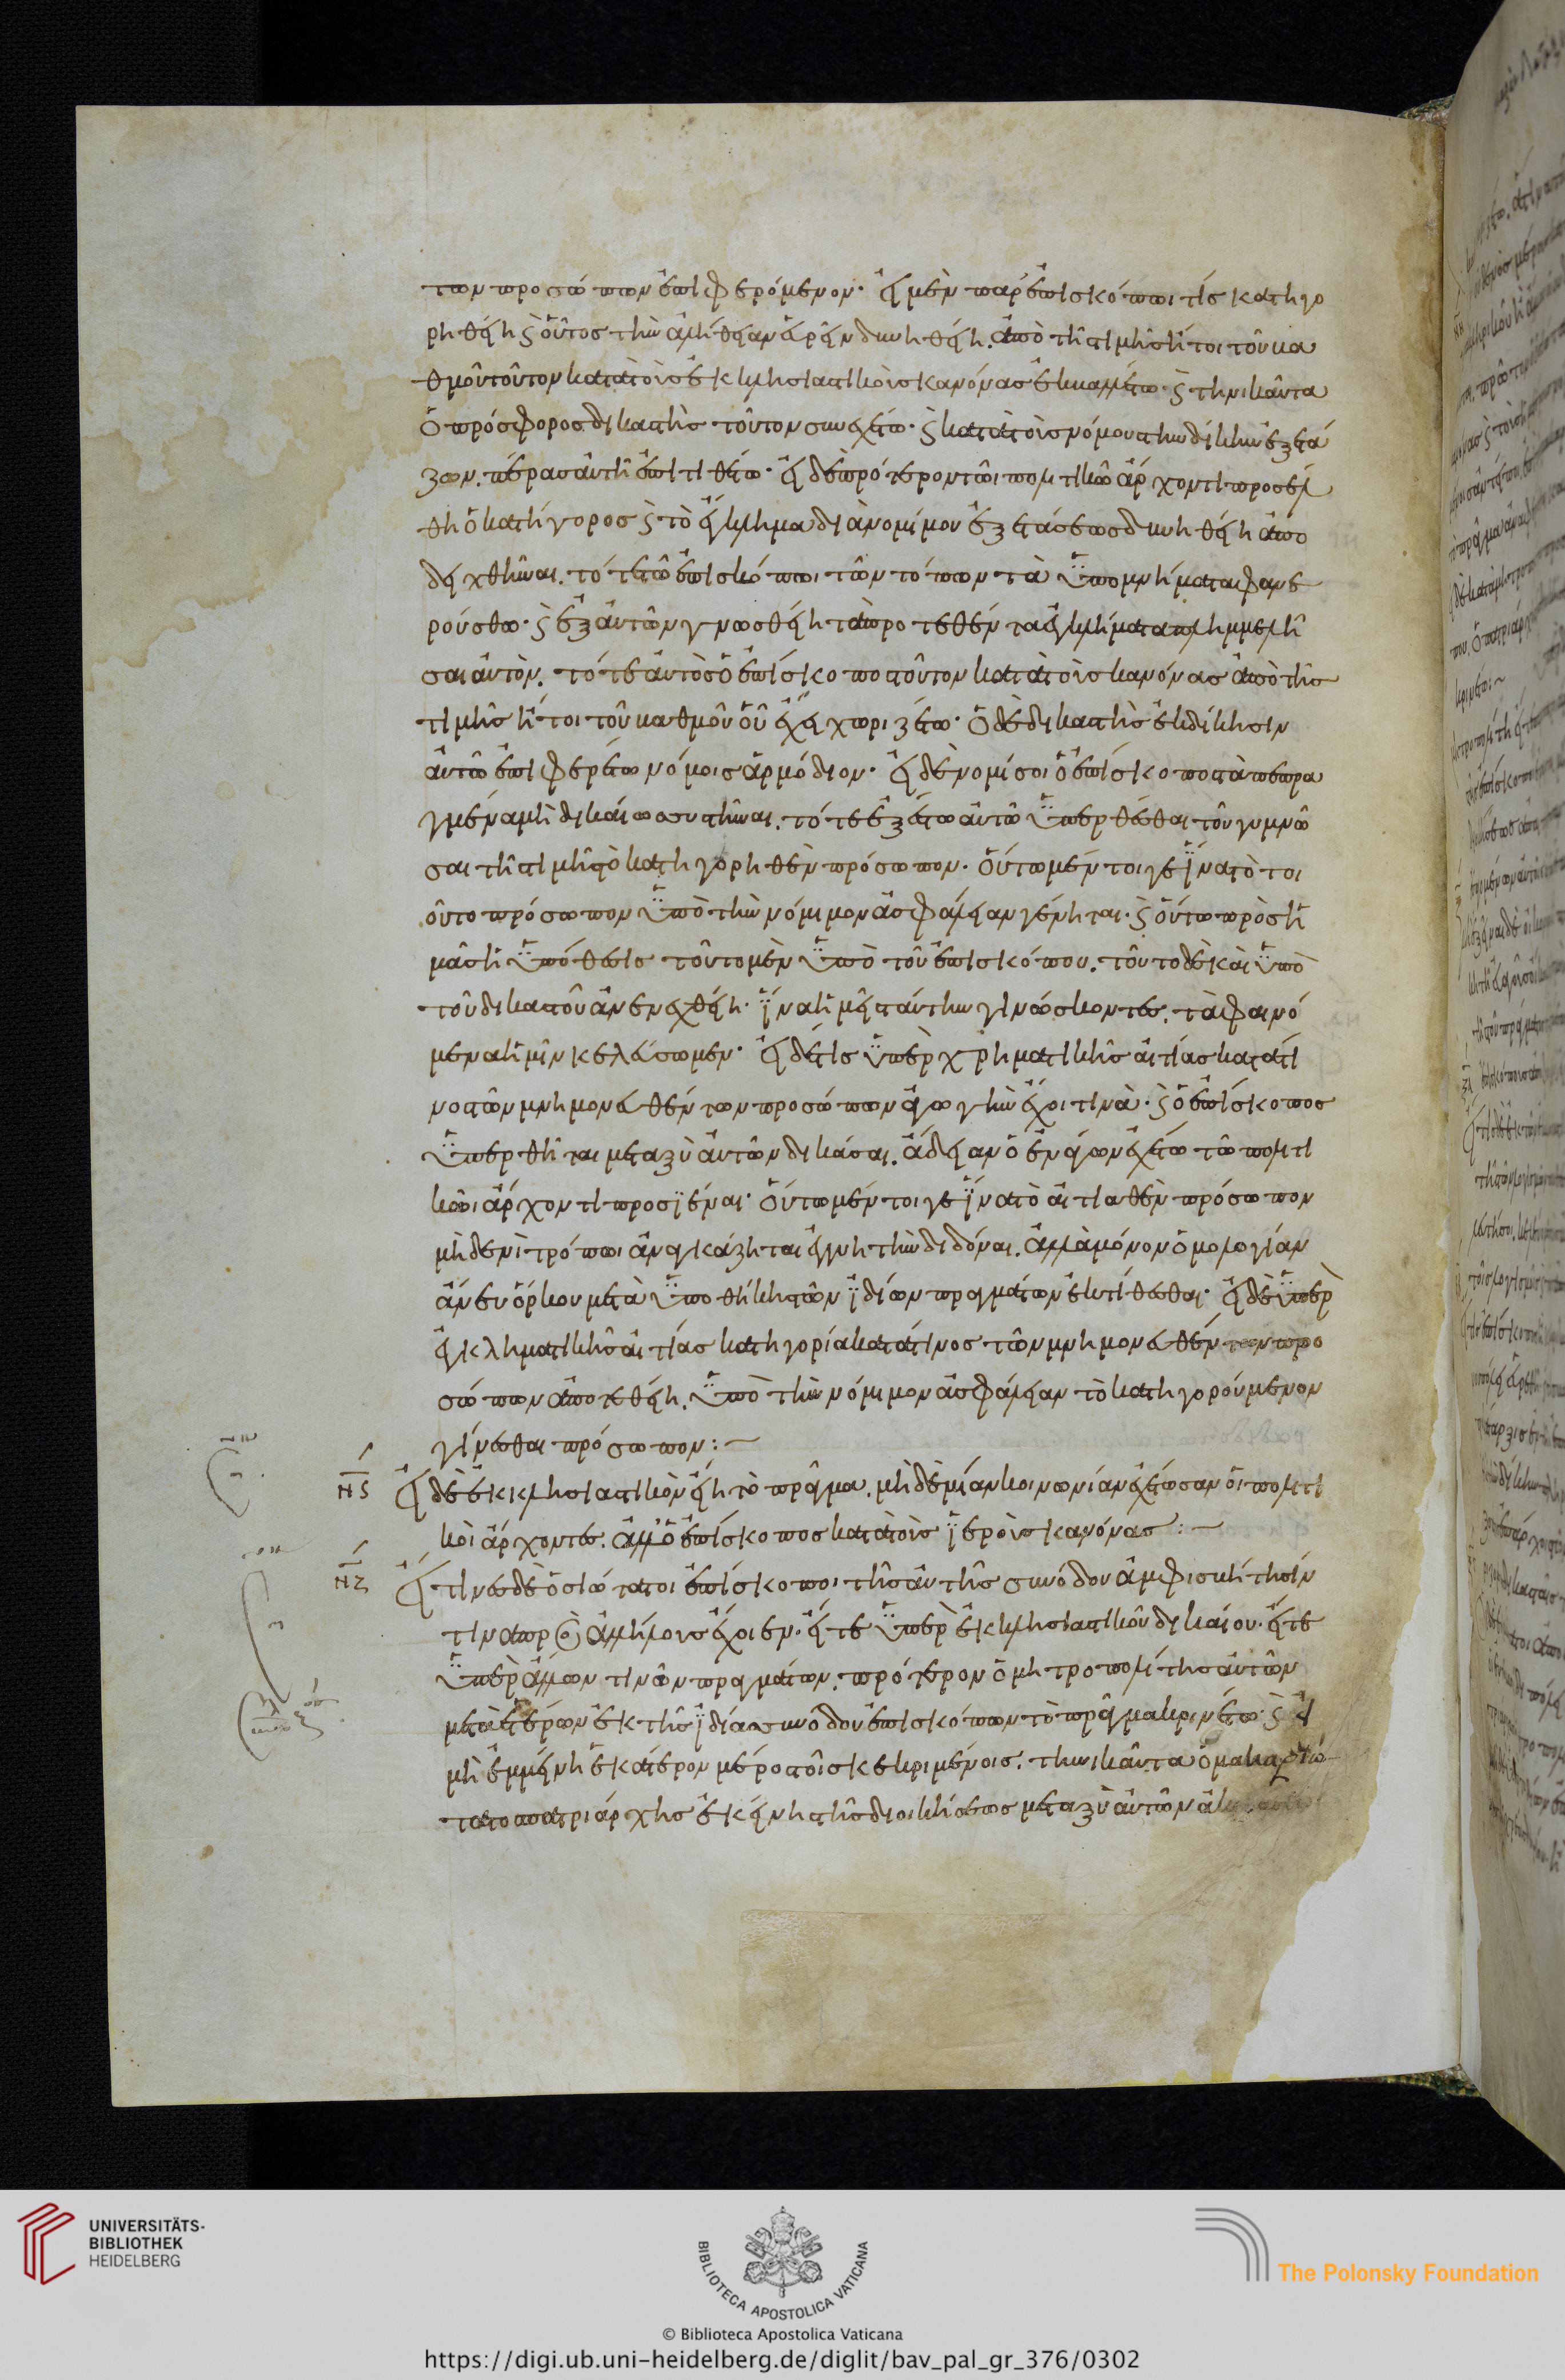 των προσώπων ἐπιφερόμενον· εἰ μὲν παρ' ἐπισκόπωι τίς κατηγο
ρηθείη καὶ οὗτος τὴν ἀλήθειαν εὑρεῖν δυνηθείη. ἀπὸ τῆς τιμῆς ἤτοι τοῦ βα
θμοῦ τοῦτον κατὰ τοὺς ἐκκλησιαστικοὺς κανόνας ἐκβαλλέτω· καὶ τηνικαῦτα
ὁ πρόσφορος δικαστὴς τοῦτον συνεχέτω· καὶ κατὰ τοὺς νόμους τὴν δίκην ἐξετά
ζων. πέρας αὐτῇ ἐπιτιθέτω· εἰ δὲ πρότερον τῶι πολιτικῶ ἄρχοντι προσέλ
θῃ ὁ κατήγορος καὶ τὸ ἔγκλημα διὰ νομίμου ἐξετάσεως δυνηθείη ἀπο
δειχθῆναι. τότε τῶ ἐπισκόπωι τῶν τόπων τὰ ὑπομνήματα φανε
ρούσθω· καὶ ἐξ αὐτῶν γνωσθείη τὰ προτεθέντα ἐγκλήματα πλημμελῆ
σαι αὐτὸν. τότε αὐτὸς ὁ ἐπίσκοπος τοῦτον κατὰ τοὺς κανόνας ἀπὸ τῆς
τιμῆς ἤτοι τοῦ βαθμοῦ οὗ ἔχει χωριζέτω· ὁ δὲ δικαστὴς ἐκδίκησιν
αὐτῶ ἐπιφερέτω νόμοις ἁρμόδιον· εἰ δὲ νομίσοι ὁ ἐπίσκοπος τὰ πεπρα
γμένα μὴ δικαίως συστῆναι. τότε ἐξέστω αὐτῶ ὑπερθέσθαι τοῦ γυμνῶ
σαι τῆς τιμῆς τὸ κατηγορηθὲν πρόσωπον. οὕτω μέν τοι γε ἵνα τὸ τοι
οῦτο πρόσωπον ὑπὸ τὴν νόμιμον ἀσφάλειαν γένηται· καὶ οὕτω πρὸς ἡ
μᾶς ἡ ὑπόθεσις τοῦτο μὲν ὑπὸ τοῦ ἐπισκόπου. τοῦτο δὲ καὶ ὑπὸ
τοῦ δικαστοῦ ἀνενεχθείη· ἵνα ἡμεῖς ταύτην γινώσκοντες. τὰ φαινό
μενα ἡμῖν κελεύσωμεν· εἰ δέ τις ὑπὲρ χρηματικῆς αἰτίας κατά τι
νος τῶν μνημονευθέντων προσώπων ἀγωγὴν ἔχοι τινὰ· καὶ ὁ ἐπίσκοπος
ὑπερθῆται μεταξὺ αὐτῶν δικάσαι. ἄδειαν ὁ ἐνάγων ἐχέτω τῶ πολιτι
κῶι ἄρχοντι προσϊέναι· οὕτω μέν τοι γε ἵνα τὸ αἰτιαθὲν πρόσωπον
μηδενὶ τρόπωι ἀναγκάζηται ἐγγυητὴν διδόναι. ἀλλὰ μόνον ὁμολογίαν
ἄνευ ὅρκου μετὰ ὑποθήκης τῶν ἰδίων πραγμάτων ἐκτίθεσθαι· εἰ δὲ ὑπὲρ
ἐγκληματικῆς αἰτίας κατηγορία κατά τινος τῶν μνημονευθέντων προ
σώπων ἀποτεθείη. ὑπὸ τὴν νόμιμον ἀσφάλειαν τὸ κατηγορούμενον
γίνεσθαι πρόσωπον:~
Νς εἰ δὲ ἐκκλησιαστικὸν εἴη τὸ πρᾶγμα. μὴ δὲ μίαν κοινωνίαν ἐχέτωσαν οἱ πολιτι
κοὶ ἄρχοντες. ἀλλ' ὁ ἐπίσκοπος κατὰ τοὺς ἱεροὺς κανόνας:~
ΝΖ εἴ τινες δὲ ὁσιώτατοι ἐπίσκοποι τῆς αὐτῆς συνόδου ἀμφισβήτησίν
τινα πρὸς ἀλλήλους ἔχοιεν. εἴτε ὑπὲρ ἐκκλησιαστικοῦ δικαίου. εἴτε
ὑπὲρ ἄλλων τινῶν πραγμάτων. πρότερον ὁ μητροπολίτης αὐτῶν
μετὰ ἑτέρων ἐκ τῆς ἰδίας συνόδου ἐπισκόπων τὸ πρᾶγμα κρινέτω· καὶ εἰ
μὴ ἐμμείνῃ ἑκάτερον μέρος τοῖς κεκριμένοις. τηνικαῦτα ὁ μακαριώ
τατος πατριάρχης ἐκείνης τῆς διοικήσεως μεταξὺ αὐτῶν
UNIVERSITÄTS-
BIBLIOTHEK
HEIDELBERG
BIBLIOTECA APOSTOLICA VATICANA
The Polonsky Foundation
© Biblioteca Apostolica Vaticana
https://digi.ub.uni-heidelberg.de/diglit/bav_pal_gr_376/0302